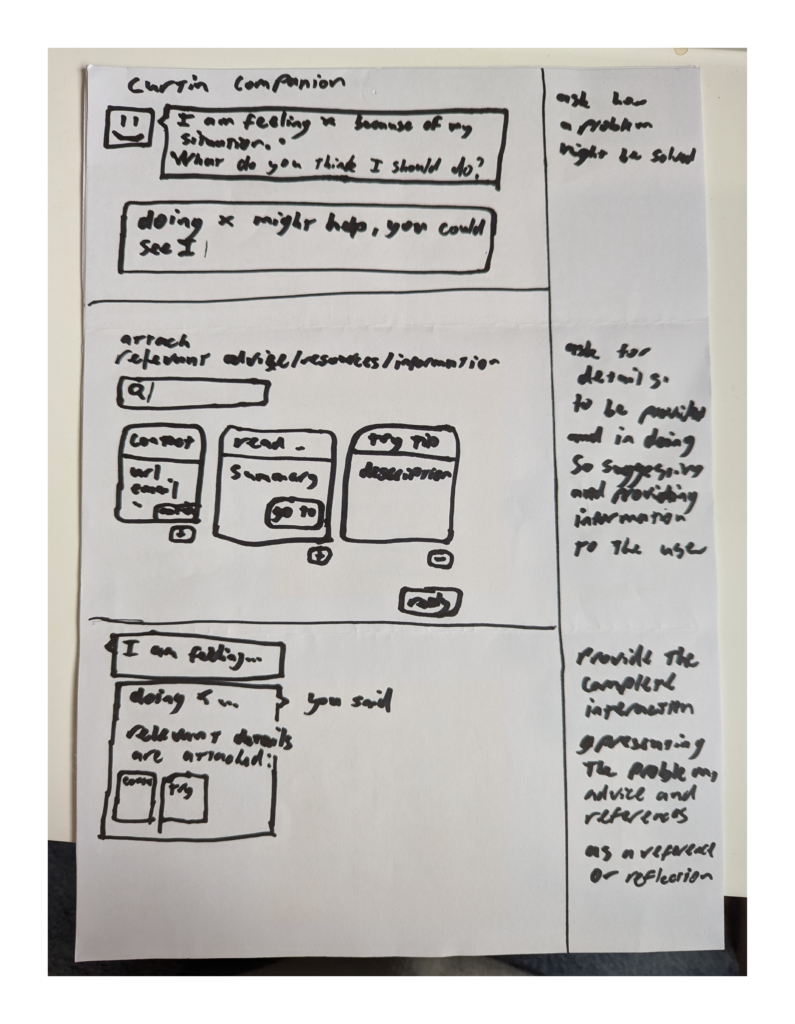 Curtin Companion
I am feeling x because of my
situation.
What do you think I should do?
doing x might help, you could
see I
ask how
a problem
might be solved
attach
relevant advice/resources/information
Q/
contact
url
email
read
summary
go to
+
try this
description
-
reply
ask for
details
to be provided
and in doing
so suggesting
and providing
information
to the user
I am feeling...
doing x ...
you said
relevant details
are attached:
try
Provide the
complete
interaction
presenting
the problem,
advice and
references
as a reference
or reflection